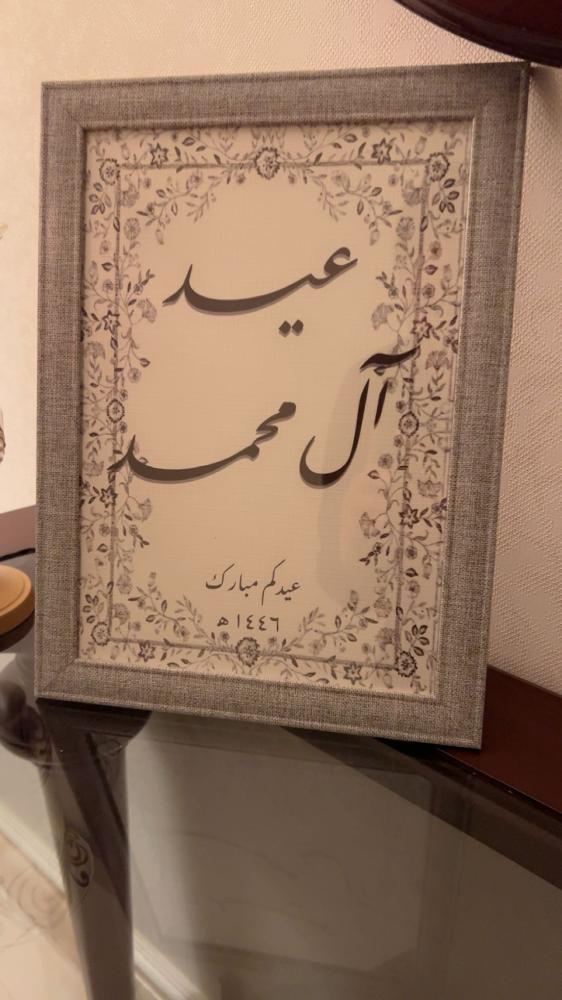 عيد
آل محمد
عيدكم مبارك
١٤٤٦ هـ